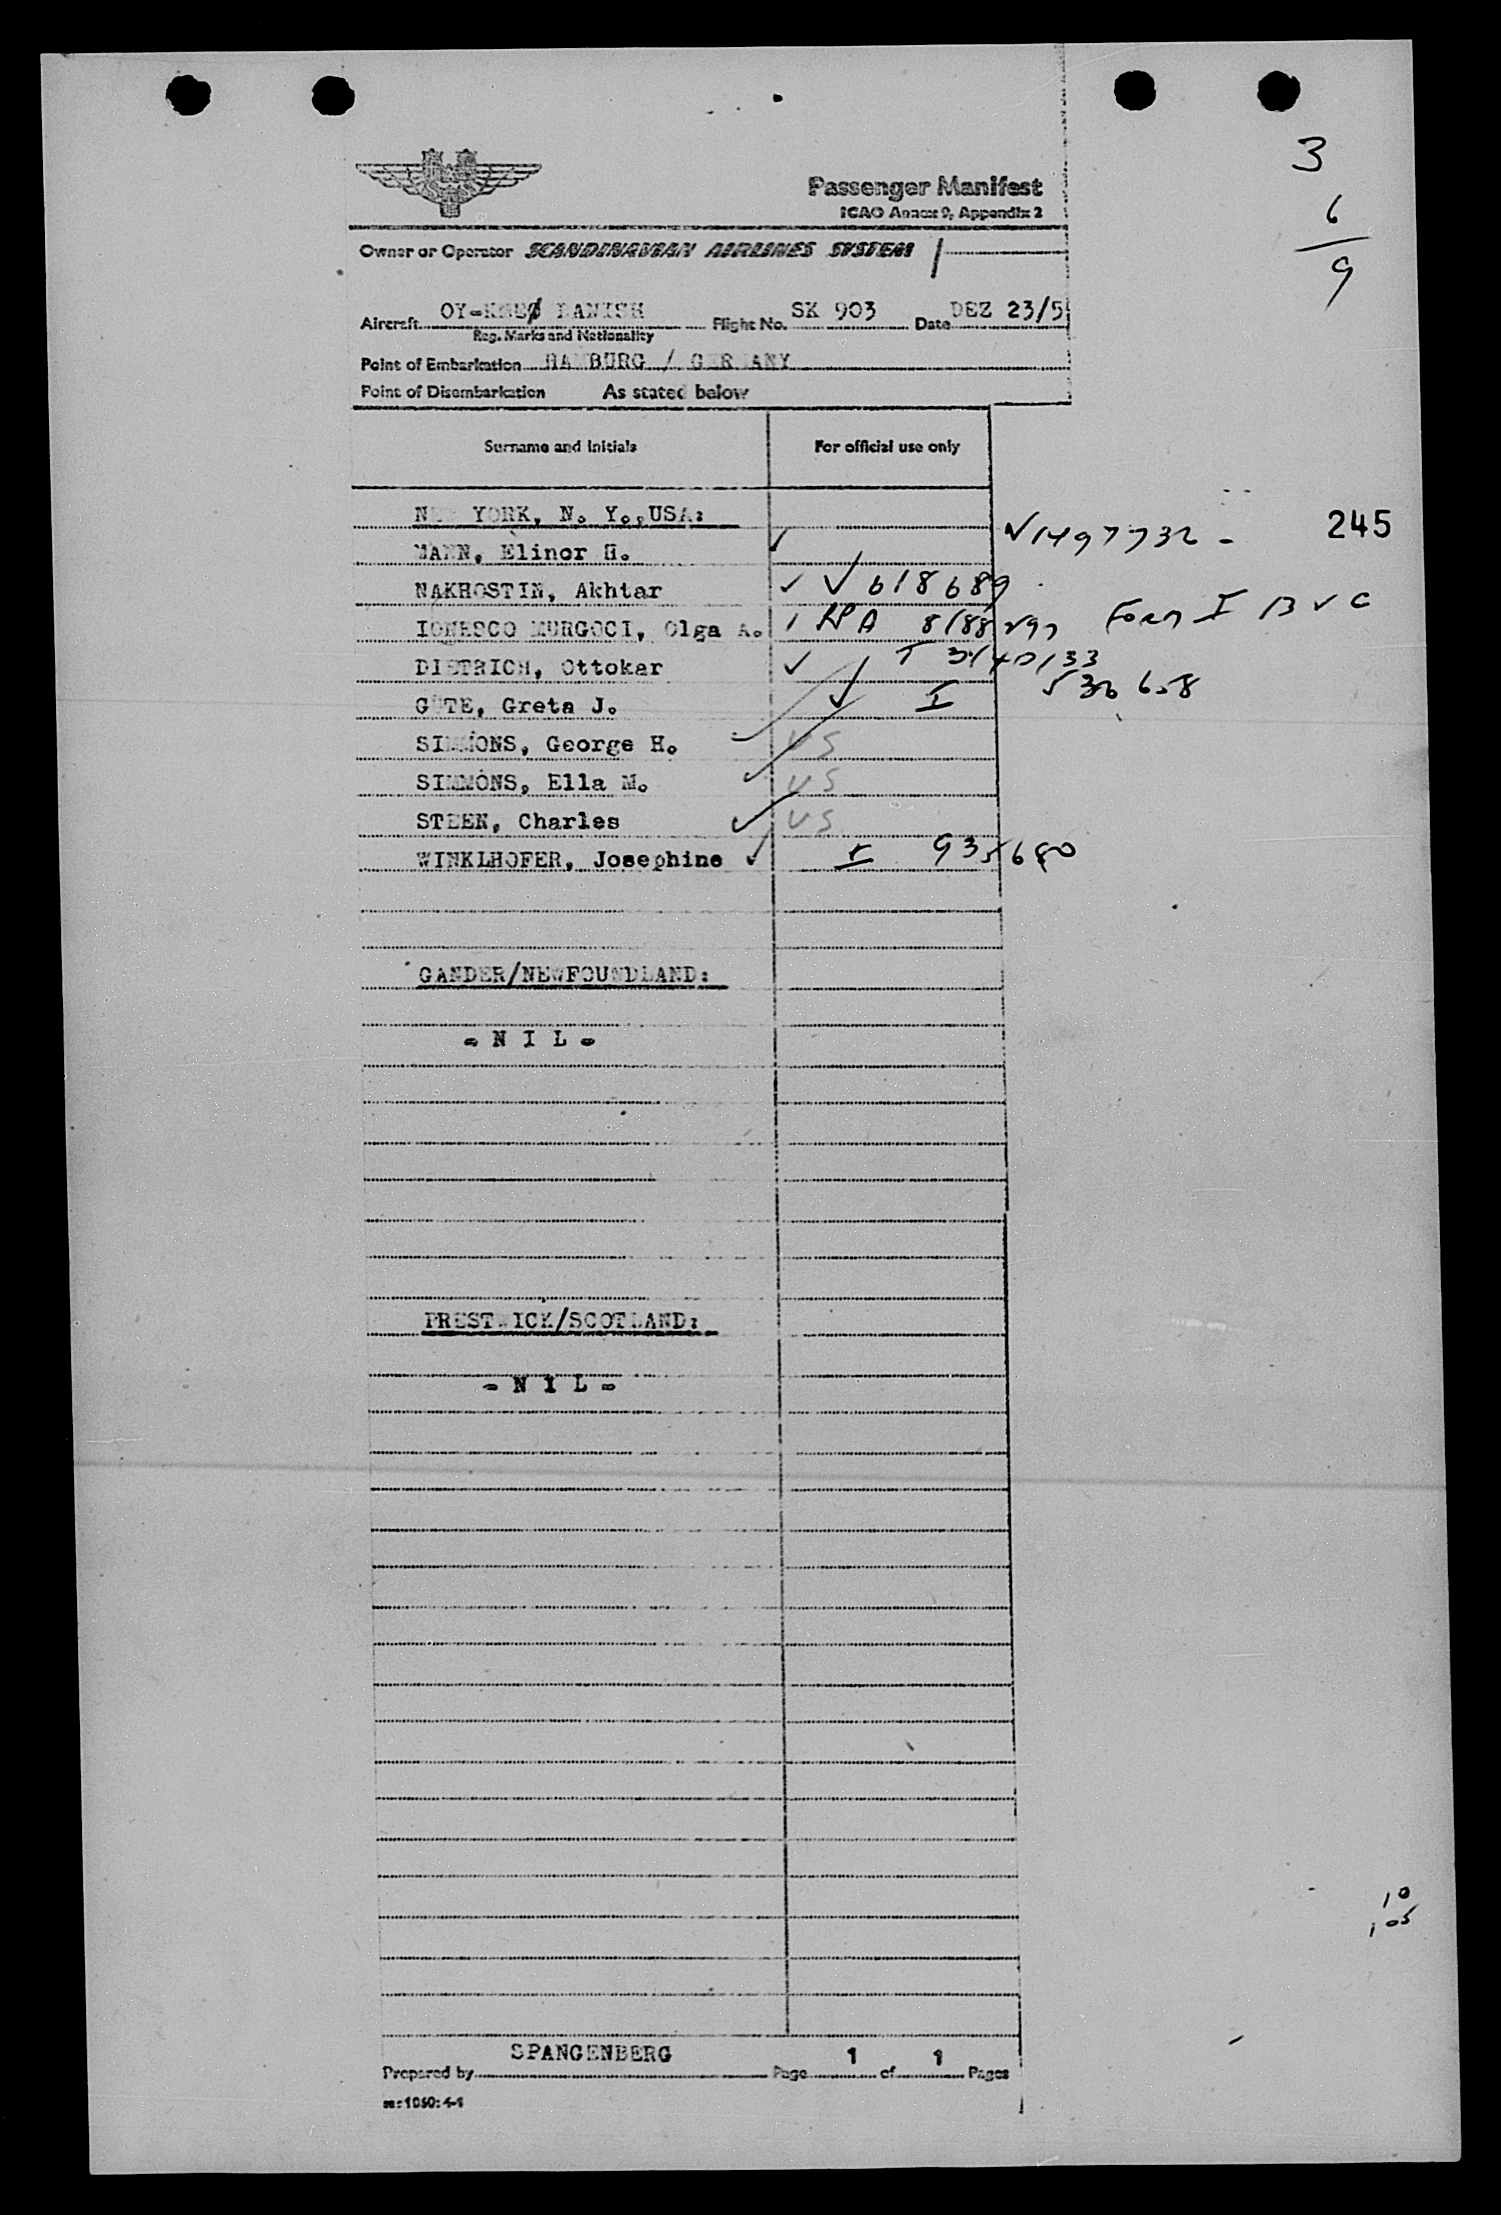 3
6
9
Passenger Manifest
ICAO Annex 9, Appendix 2
Owner or Operator SCANDINAVIAN AIRLINES SYSTEM
Aircraft DANISH Flight No. SK 903 Date DEZ 23/5
Reg. Marks and Nationality
Point of Embarkation HAMBURG / GERMANY
Point of Disembarkation As stated below
Surname and Initials For official use only
NEW YORK, N. Y., USA:
245
MANN, Elinor H. V1497732 -
NAKHOSTIN, Akhtar V 618689
IONESCO MURGOCI, Olga A. A 8188297 Form I B V C
DIETRICH, Ottokar T
GUTE, Greta J. I
SIMMONS, George H. US
SIMMONS, Ella M. US
STEEN, Charles US
WINKLHOFER, Josephine I 935680
GANDER/NEWFOUNDLAND:
- N I L -
PRESTWICK/SCOTLAND:
- N I L -
10
105
Prepared by SPANGENBERG Page 1 of 1 Pages